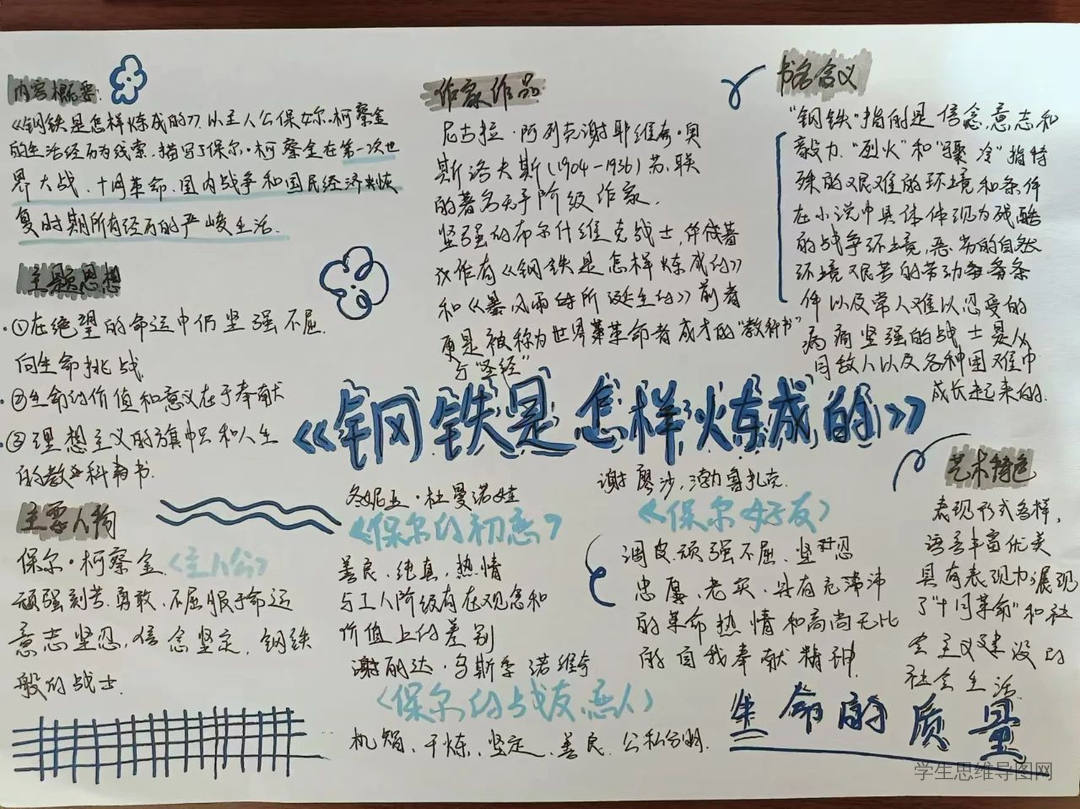 内容概要
《钢铁是怎样炼成的》以主人公保尔·柯察金
的生活经历为线索，描写了保尔·柯察金在第一次世
界大战、十月革命、国内战争和国民经济恢
复时期所有经历的严峻生活.
主题思想
·①在绝望的命运中仍坚强不屈.
向生命挑战.
·②生命的价值和意义在于奉献
·③理想主义的旗帜和人生
的教科书.
主要人物
保尔·柯察金 <主人公>
顽强刻苦.勇敢.不屈服于命运
意志坚忍,信念坚定.钢铁
般的战士.
作家作品
尼古拉·阿列克谢耶维奇·奥
斯洛夫斯(1904—1936)苏.联
的著名无于阶级作家.
坚强的布尔什维克战士,
作有《钢铁是怎样炼成的》
和《暴风雨的所诞生的》前者
更是被称为世界革命者成才的"教科书"
与"圣经"
书名含义
"钢铁"指的是信念.意志和
毅力."烈火"和"骤冷"指特
殊的艰难的环境和条件
在小说中具体体现为残酷
的战争环境,恶劣的自然
环境艰苦的劳动条
件以及常人难以忍受的
病痛坚强的战士是从
同敌人以及各种困难中
成长起来的.
《钢铁是怎样炼成的》
冬妮亚·杜曼诺娃
<保尔的初恋>
善良.纯真,热情
与工人阶级有在观念和
价值上的差别
谢丽达·乌斯季诺维奇
<保尔的战友,恋人>
机智、干炼、坚定、善良.公私分明.
谢廖沙,勃鲁扎克
<保尔好友>
调皮顽强不屈.坚忍
忠厚、老实、具有充沛沛
的革命热情和高尚无比
的自我奉献精神.
艺术特色
表现形式多样,
语言丰富优美
具有表现力展现
了"十月革命"和社
会主义建设的
社会生活.
生命的质量
学生思维导图网